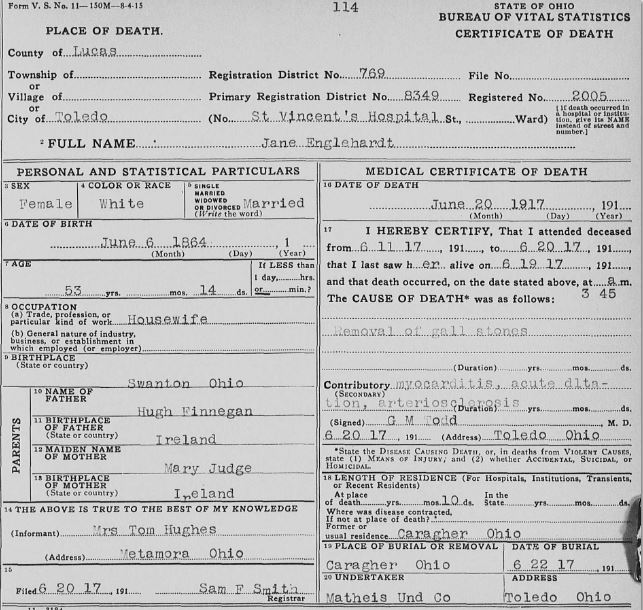 Form V. S. No. 11—150M—8-4-15
114
STATE OF OHIO
BUREAU OF VITAL STATISTICS
CERTIFICATE OF DEATH
PLACE OF DEATH.
County of Lucas
Township of
Registration District No. 769 File No.
or
Village of
Primary Registration District No. 8349 Registered No. 2005
or
City of Toledo (No. St Vincent's Hospital St., Ward)
[If death occurred in
a hospital or institu-
tion, give its NAME
instead of street and
number.]
2 FULL NAME Jane Englehardt
PERSONAL AND STATISTICAL PARTICULARS
3 SEX
Female
4 COLOR OR RACE
White
5 SINGLE
MARRIED
WIDOWED
OR DIVORCED Married
(Write the word)
6 DATE OF BIRTH
June 6 1864, 1
(Month) (Day) (Year)
7 AGE
53 yrs. mos. 14 ds.
If LESS than
1 day, hrs.
or min.?
8 OCCUPATION
(a) Trade, profession, or
particular kind of work Housewife
(b) General nature of industry,
business, or establishment in
which employed (or employer)
9 BIRTHPLACE
(State or country)
Swanton Ohio
PARENTS
10 NAME OF
FATHER
Hugh Finnegan
11 BIRTHPLACE
OF FATHER
(State or country)
Ireland
12 MAIDEN NAME
OF MOTHER
Mary Judge
13 BIRTHPLACE
OF MOTHER
(State or country)
Ireland
14 THE ABOVE IS TRUE TO THE BEST OF MY KNOWLEDGE
(Informant) Mrs Tom Hughes
(Address) Metamora Ohio
15
Filed 6 20 17, 191 Sam F Smith
Registrar
MEDICAL CERTIFICATE OF DEATH
16 DATE OF DEATH
June 20 1917, 191
(Month) (Day) (Year)
17 I HEREBY CERTIFY, That I attended deceased
from 6 11 17, 191, to 6 20 17, 191
that I last saw her alive on 6 19 17, 191
and that death occurred, on the date stated above, at a.m.
3 45
The CAUSE OF DEATH* was as follows:
Removal of gall stones
(Duration) yrs. mos. ds.
Contributory myocarditis, acute dlta-
(SECONDARY)
tion, arteriosclerosis
(Duration) yrs. mos. ds.
(Signed) G M Todd M. D.
6 20 17, 191 (Address) Toledo Ohio
*State the DISEASE CAUSING DEATH, or, in deaths from VIOLENT CAUSES,
state (1) MEANS OF INJURY; and (2) whether ACCIDENTAL, SUICIDAL, or
HOMICIDAL.
18 LENGTH OF RESIDENCE (For Hospitals, Institutions, Transients,
or Recent Residents)
At place
of death yrs. mos. 10 ds.
In the
State yrs. mos. ds.
Where was disease contracted,
If not at place of death?
Former or
usual residence Caragher Ohio
19 PLACE OF BURIAL OR REMOVAL
Caragher Ohio
DATE OF BURIAL
6 22 17, 191
20 UNDERTAKER
Matheis Und Co
ADDRESS
Toledo Ohio